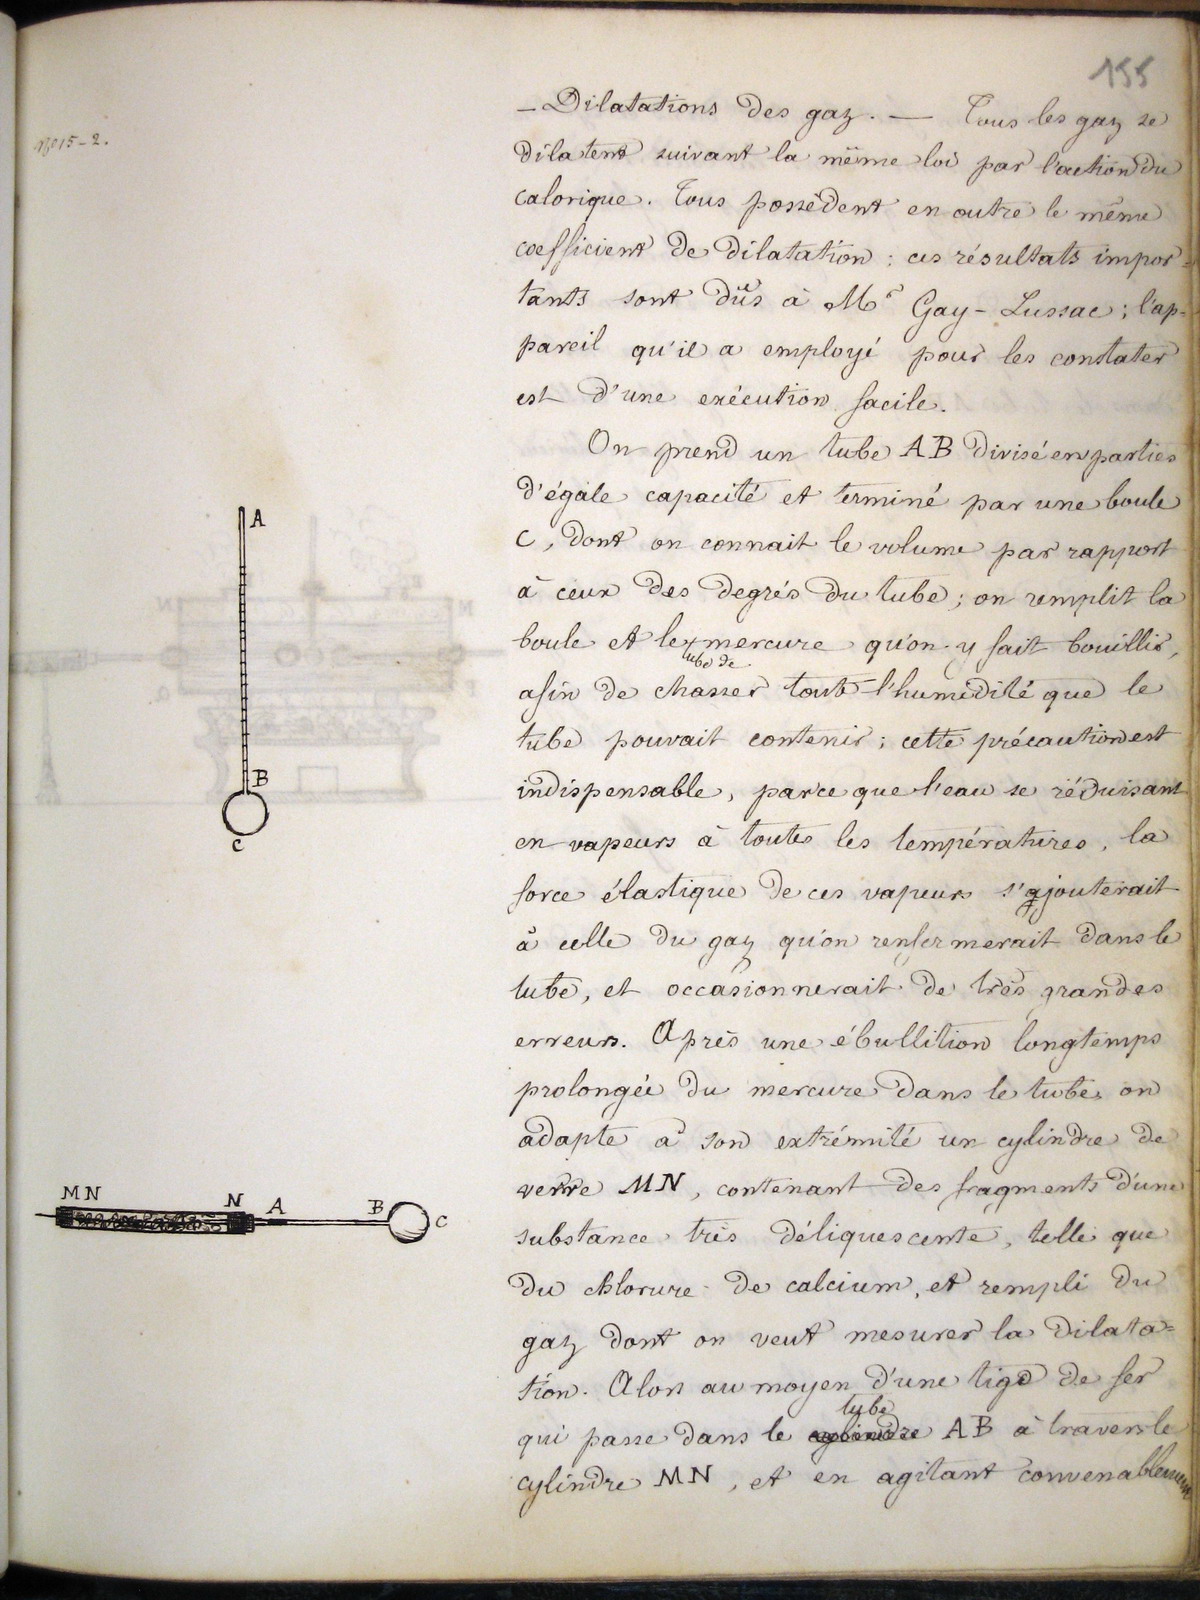 155
— Dilatations des gaz. — Tous les gaz se
dilatent suivant la même loi par l'action du
calorique. Tous possèdent en outre le même
coefficient de dilatation : ces résultats impor=
tants sont dûs à Mr Gay-Lussac ; l'ap-
pareil qu'il a employé pour les constater
est d'une exécution facile.
On prend un tube AB divisé en parties
d'égale capacité et terminé par une boule
C, dont on connait le volume par rapport
à ceux des degrés du tube ; on remplit la
boule et le mercure qu'on y fait bouillir,
tube de
afin de chasser toute l'humidité que le
tube pouvait contenir ; cette précaution est
indispensable, parce que l'eau se réduisant
en vapeurs à toutes les températures, la
force élastique de ces vapeurs s'ajouterait
à celle du gaz qu'on renfermerait dans le
tube, et occasionnerait de très grandes
erreurs. Après une ébullition longtemps
prolongée du mercure dans le tube, on
adapte à son extrémité un cylindre de
verre MN, contenant des fragments d'une
substance très déliquescente, telle que
du chlorure de calcium, et rempli du
gaz dont on veut mesurer la dilata=
tion. Alors au moyen d'une tige de fer
tube
qui passe dans le cylindre AB à travers le
cylindre MN, et en agitant convenablement
A
B
C
MN
N
A
B
C